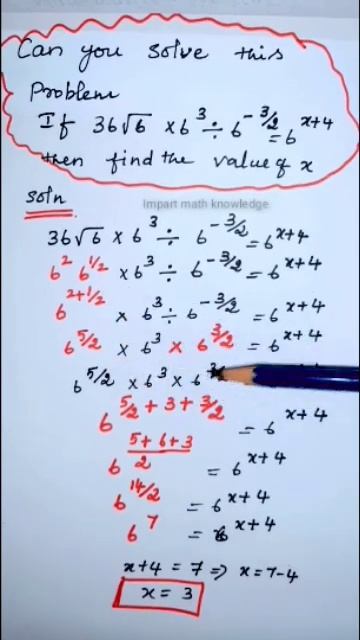 Can you solve this
Problem
If 36√6 × 6³ ÷ 6^(-3/2) = 6^(x+4)
then find the value of x
Soln
Impart math knowledge
36√6 × 6³ ÷ 6^(-3/2) = 6^(x+4)
6² 6^(1/2) × 6³ ÷ 6^(-3/2) = 6^(x+4)
6^(2+1/2) × 6³ ÷ 6^(-3/2) = 6^(x+4)
6^(5/2) × 6³ × 6^(3/2) = 6^(x+4)
6^(5/2) × 6³ × 6
6^(5/2 + 3 + 3/2) = 6^(x+4)
6^((5+6+3)/2) = 6^(x+4)
6^(14/2) = 6^(x+4)
6^7 = 6^(x+4)
x+4 = 7 ⇒ x = 7-4
x = 3